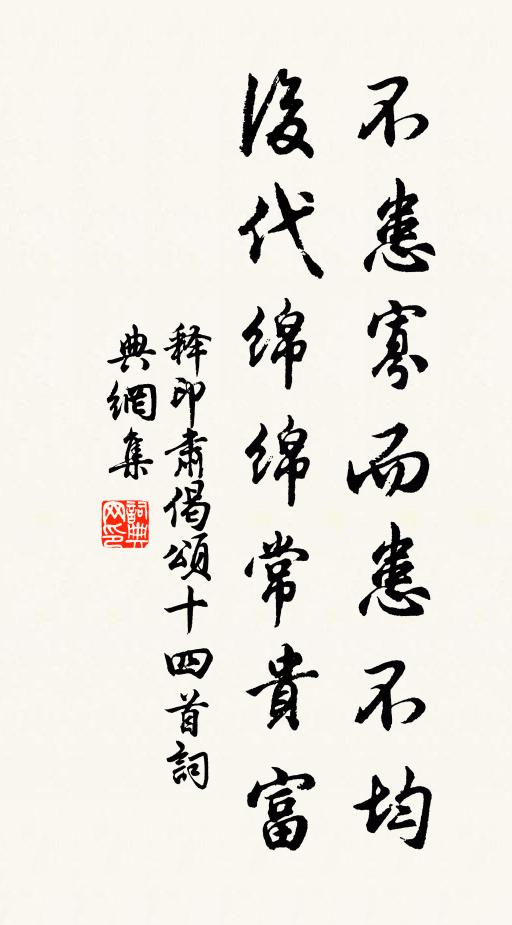 不患寡而患不均
後代綿綿常貴富
释印肃偈頌十四首詞
典網集
詞典网印